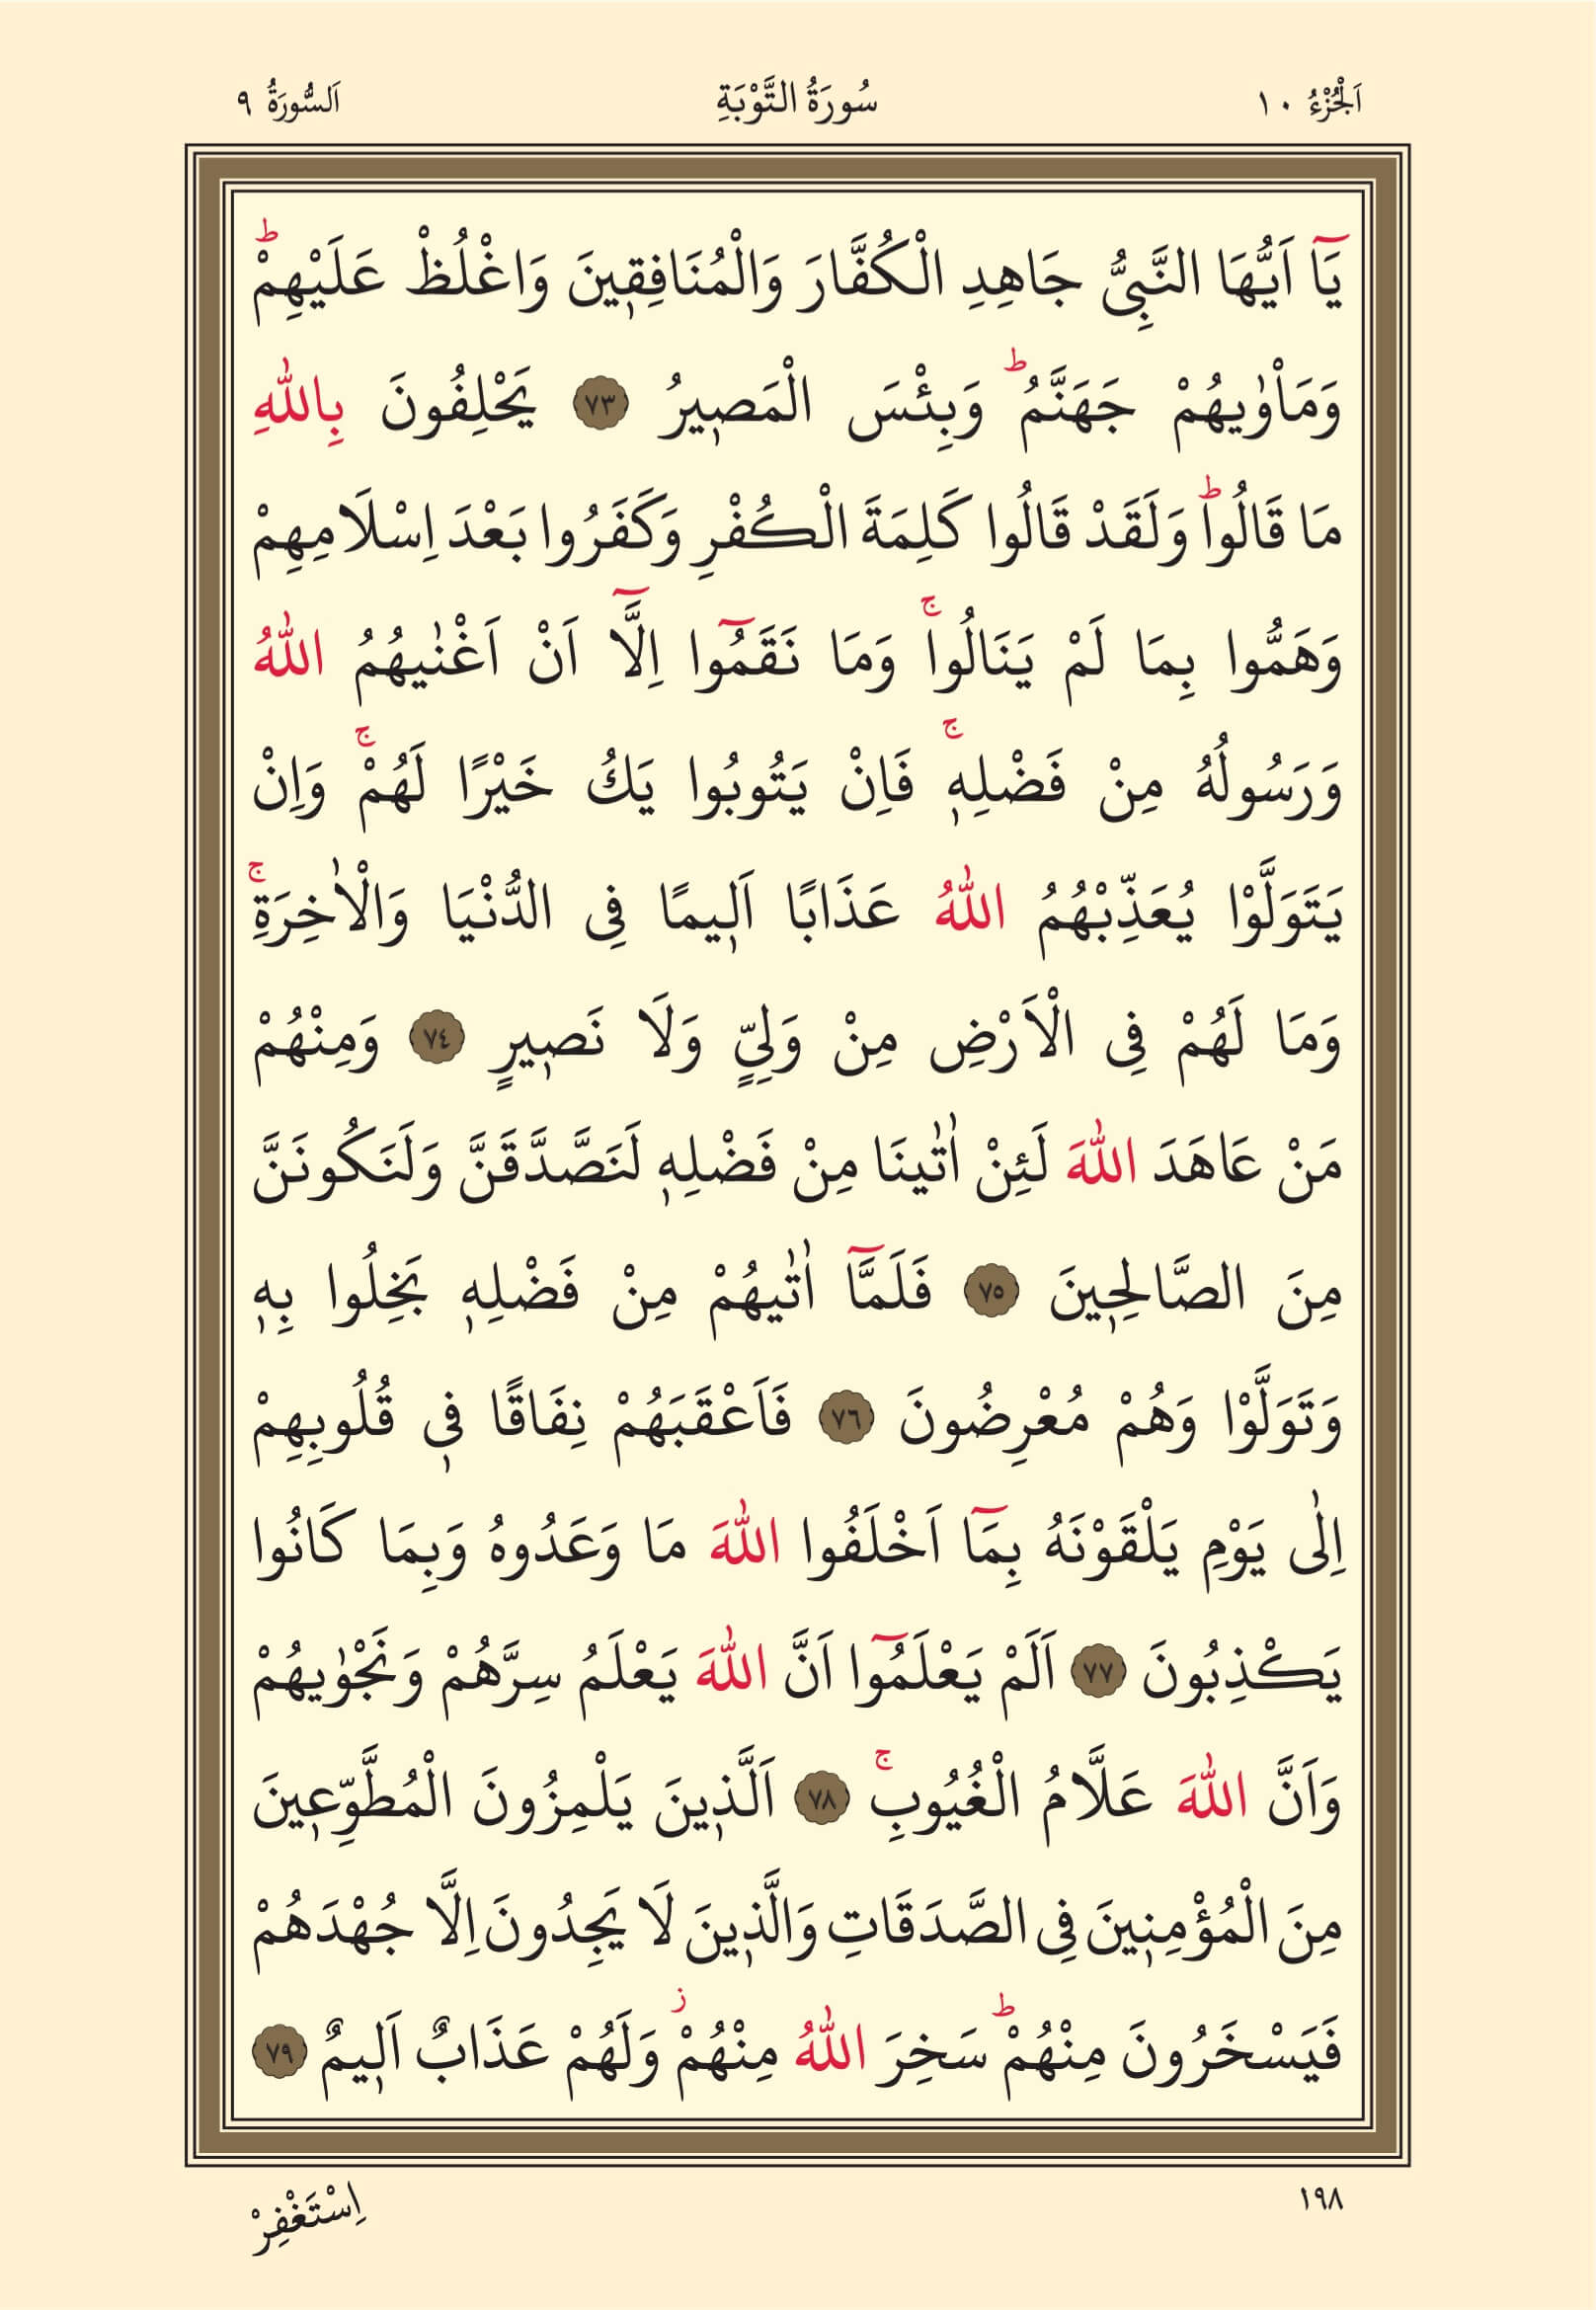 اَلْجُزْءُ ١٠
سُورَةُ التَّوْبَةِ
اَلسُّورَةُ ٩
يَٓا اَيُّهَا النَّبِىُّ جَاهِدِ الْكُفَّارَ وَالْمُنَافِقٖينَ وَاغْلُظْ عَلَيْهِمْؕ
وَمَاْوٰيهُمْ جَهَنَّمُؕ وَبِئْسَ الْمَصٖيرُ ﴿٧٣﴾ يَحْلِفُونَ بِاللّٰهِ
مَا قَالُواؕ وَلَقَدْ قَالُوا كَلِمَةَ الْكُفْرِ وَكَفَرُوا بَعْدَ اِسْلَامِهِمْ
وَهَمُّوا بِمَا لَمْ يَنَالُواۚ وَمَا نَقَمُٓوا اِلَّٓا اَنْ اَغْنٰيهُمُ اللّٰهُ
وَرَسُولُهُ مِنْ فَضْلِهٖۚ فَاِنْ يَتُوبُوا يَكُ خَيْرًا لَهُمْۚ وَاِنْ
يَتَوَلَّوْا يُعَذِّبْهُمُ اللّٰهُ عَذَابًا اَلٖيمًا فِى الدُّنْيَا وَالْاٰخِرَةِۚ
وَمَا لَهُمْ فِى الْاَرْضِ مِنْ وَلِىٍّ وَلَا نَصٖيرٍ ﴿٧٤﴾ وَمِنْهُمْ
مَنْ عَاهَدَ اللّٰهَ لَئِنْ اٰتٰينَا مِنْ فَضْلِهٖ لَنَصَّدَّقَنَّ وَلَنَكُونَنَّ
مِنَ الصَّالِحٖينَ ﴿٧٥﴾ فَلَمَّٓا اٰتٰيهُمْ مِنْ فَضْلِهٖ بَخِلُوا بِهٖ
وَتَوَلَّوْا وَهُمْ مُعْرِضُونَ ﴿٧٦﴾ فَاَعْقَبَهُمْ نِفَاقًا فٖى قُلُوبِهِمْ
اِلٰى يَوْمِ يَلْقَوْنَهُ بِمَٓا اَخْلَفُوا اللّٰهَ مَا وَعَدُوهُ وَبِمَا كَانُوا
يَكْذِبُونَ ﴿٧٧﴾ اَلَمْ يَعْلَمُٓوا اَنَّ اللّٰهَ يَعْلَمُ سِرَّهُمْ وَنَجْوٰيهُمْ
وَاَنَّ اللّٰهَ عَلَّامُ الْغُيُوبِۚ ﴿٧٨﴾ اَلَّذٖينَ يَلْمِزُونَ الْمُطَّوِّعٖينَ
مِنَ الْمُؤْمِنٖينَ فِى الصَّدَقَاتِ وَالَّذٖينَ لَا يَجِدُونَ اِلَّا جُهْدَهُمْ
فَيَسْخَرُونَ مِنْهُمْؕ سَخِرَ اللّٰهُ مِنْهُمْؗ وَلَهُمْ عَذَابٌ اَلٖيمٌ ﴿٧٩﴾
١٩٨
اِسْتَغْفِرْ